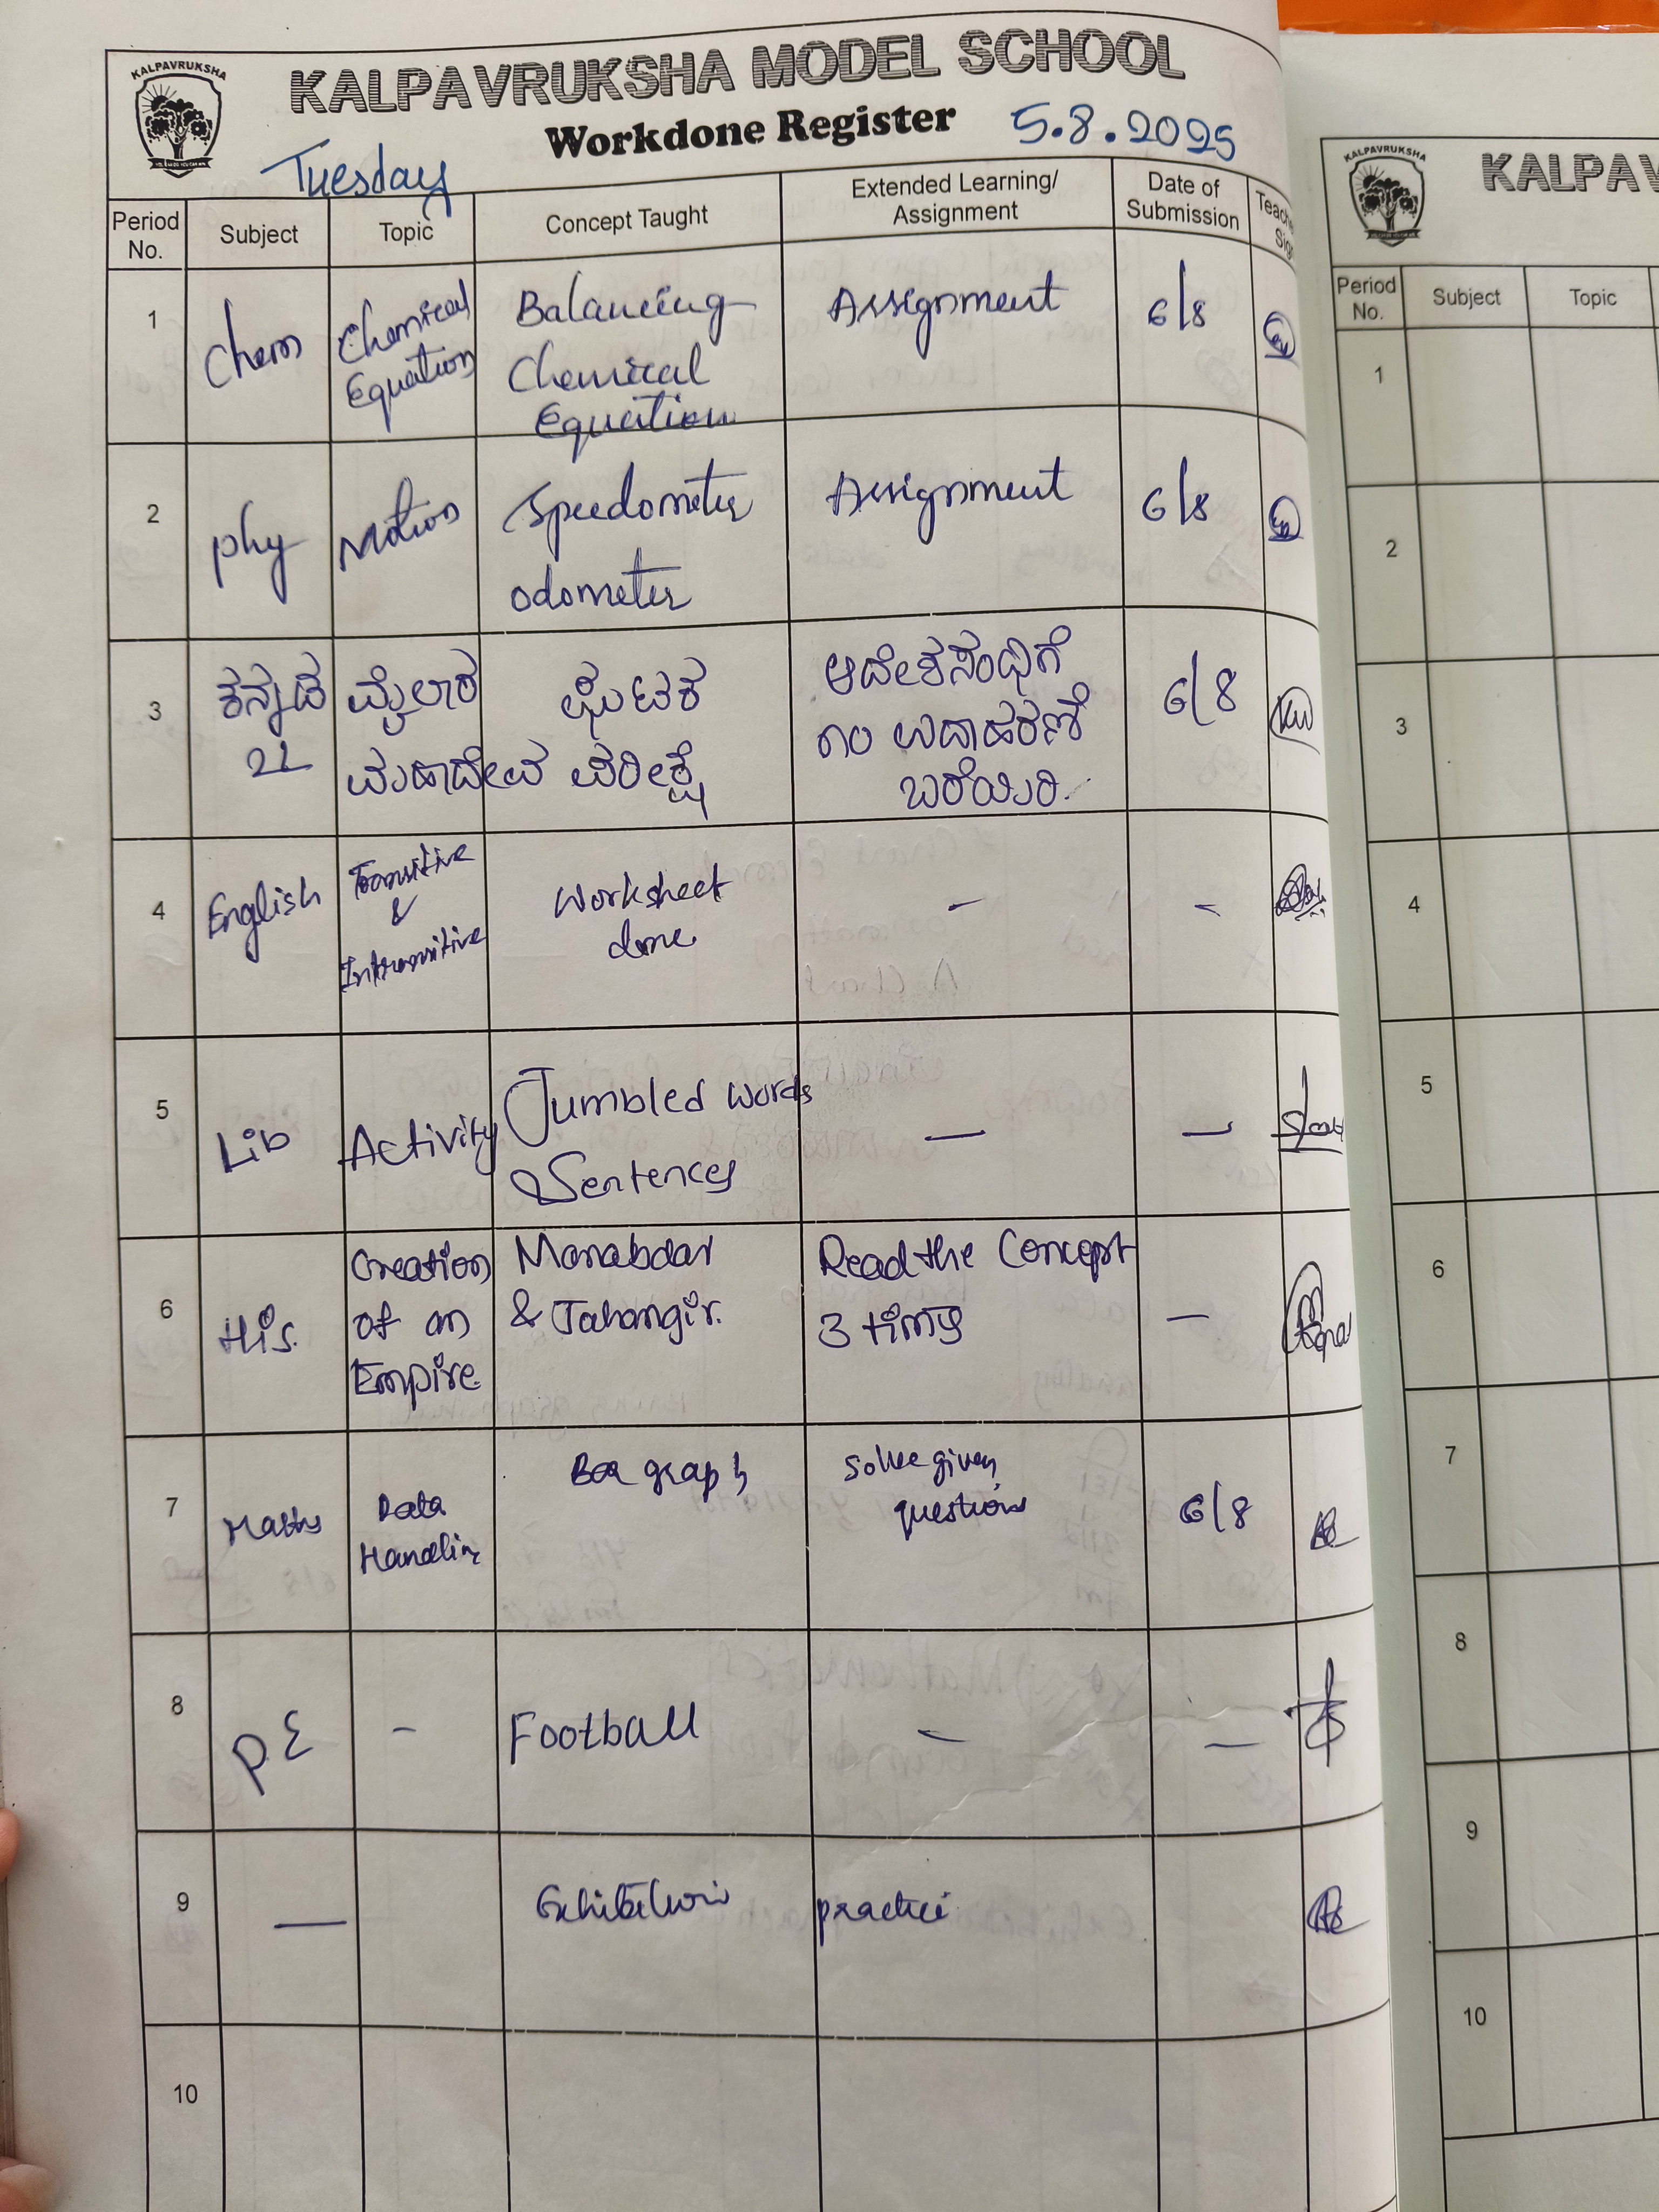 KALPAVRUKSHA
KALPAVRUKSHA MODEL SCHOOL
Workdone Register 5.8.2025
Tuesday
Period No. Subject Topic Concept Taught Extended Learning/ Assignment Date of Submission
1 Chem Chemical Equation Balancing Chemical Equation Assignment 6/8
2 phy Motion Speedometer odometer Assignment 6/8
3 ಕನ್ನಡ 2L ಮೈಲಾರ ಮಹಾದೇವ ಘಟಕ ಪರೀಕ್ಷೆ ಆದೇಶಸಂಧಿಗೆ ೧೦ ಉದಾಹರಣೆ ಬರೆಯಿರಿ. 6/8
4 English Transitive & Intransitive Worksheet done - -
5 Lib Activity Jumbled words & Sentences — —
6 His. Creation of an Empire Mansabdar & Jahangir. Read the Concept 3 times —
7 Maths Data Handling Bar graph solve given questions 6/8
8 P.E - Football - —
9 — Exhibition practice
10
KALPAVRUKSHA
KALPAV
Period No. Subject Topic
1
2
3
4
5
6
7
8
9
10